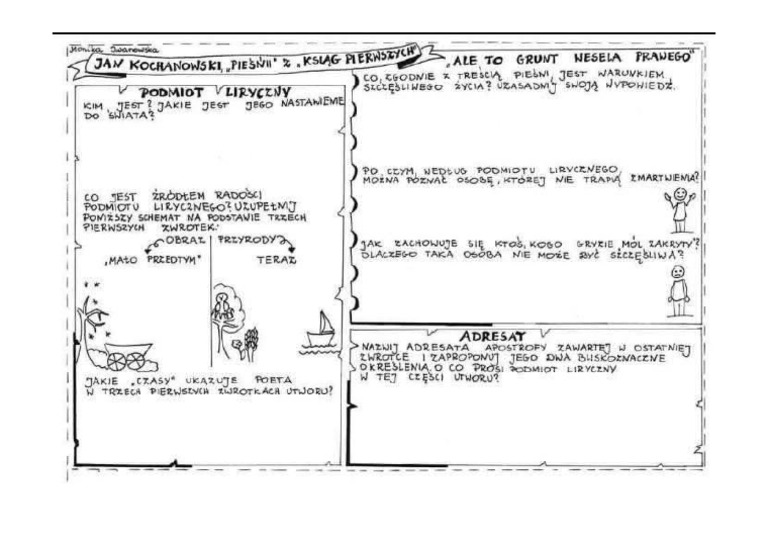 Monika Iwanowska
JAN KOCHANOWSKI, „PIEŚŃ II" Z „KSIĄG PIERWSZYCH"
PODMIOT LIRYCZNY
KIM JEST? JAKIE JEST JEGO NASTAWIENIE
DO ŚWIATA?
CO JEST ŹRÓDŁEM RADOŚCI
PODMIOTU LIRYCZNEGO? UZUPEŁNIJ
PONIŻSZY SCHEMAT NA PODSTAWIE TRZECH
PIERWSZYCH ZWROTEK.
OBRAZ PRZYRODY
„MAŁO PRZEDTYM"
TERAZ
JAKIE „CZASY" UKAZUJE POETA
W TRZECH PIERWSZYCH ZWROTKACH UTWORU?
„ALE TO GRUNT WESELA PRAWEGO"
CO, ZGODNIE Z TREŚCIĄ PIEŚNI, JEST WARUNKIEM
SZCZĘŚLIWEGO ŻYCIA? UZASADNIJ SWOJĄ WYPOWIEDŹ.
PO CZYM, WEDŁUG PODMIOTU LIRYCZNEGO,
MOŻNA POZNAĆ OSOBĘ, KTÓREJ NIE TRAPIĄ ZMARTWIENIA?
JAK ZACHOWUJE SIĘ KTOŚ, KOGO GRYZIE „MÓL ZAKRYTY"?
DLACZEGO TAKA OSOBA NIE MOŻE BYĆ SZCZĘŚLIWA?
ADRESAT
NAZWIJ ADRESATA APOSTROFY ZAWARTEJ W OSTATNIEJ
ZWROTCE I ZAPROPONUJ JEGO DWA BLISKOZNACZNE
OKREŚLENIA. O CO PROSI PODMIOT LIRYCZNY
W TEJ CZĘŚCI UTWORU?